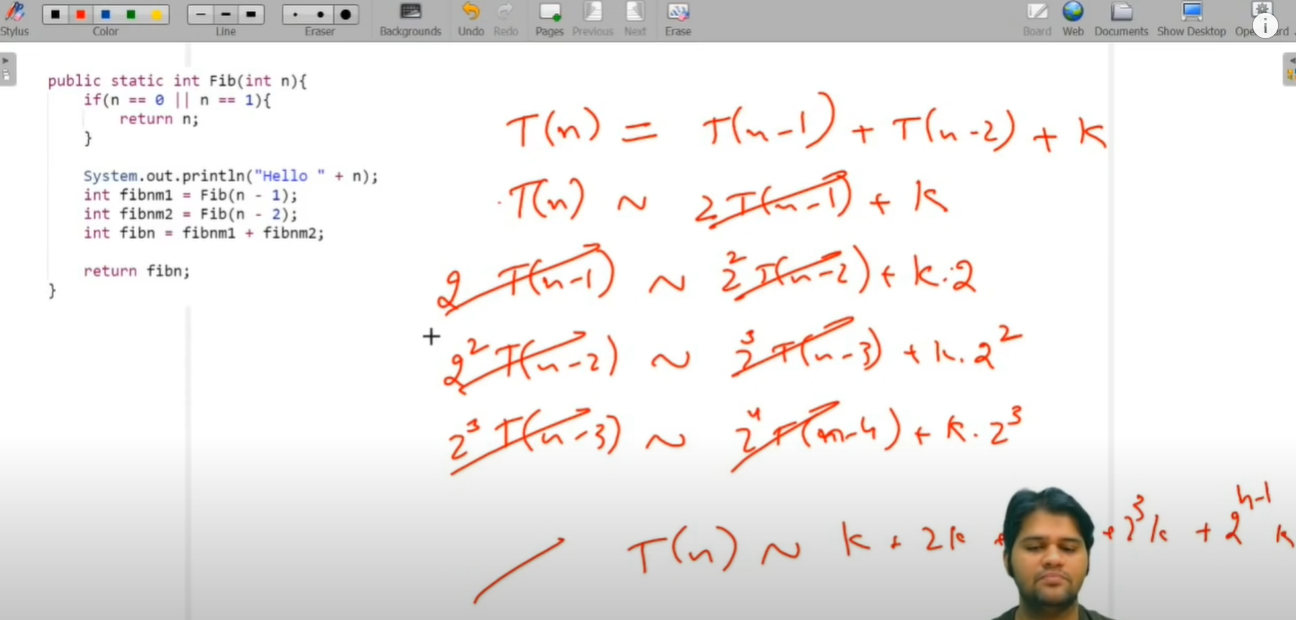 Stylus Color Line Eraser Backgrounds Undo Redo Pages Previous Next Erase Board Web Documents Show Desktop
public static int Fib(int n){
if(n == 0 || n == 1){
return n;
}
System.out.println("Hello " + n);
int fibnm1 = Fib(n - 1);
int fibnm2 = Fib(n - 2);
int fibn = fibnm1 + fibnm2;
return fibn;
}
T(n) = T(n-1) + T(n-2) + k
T(n) ~ 2T(n-1) + k
2 T(n-1) ~ 2² T(n-2) + k.2
+
2² T(n-2) ~ 2³ T(n-3) + k.2²
2³ T(n-3) ~ 2⁴ T(n-4) + k.2³
T(n) ~ k + 2k + + 2³k + 2ⁿ⁻¹ k